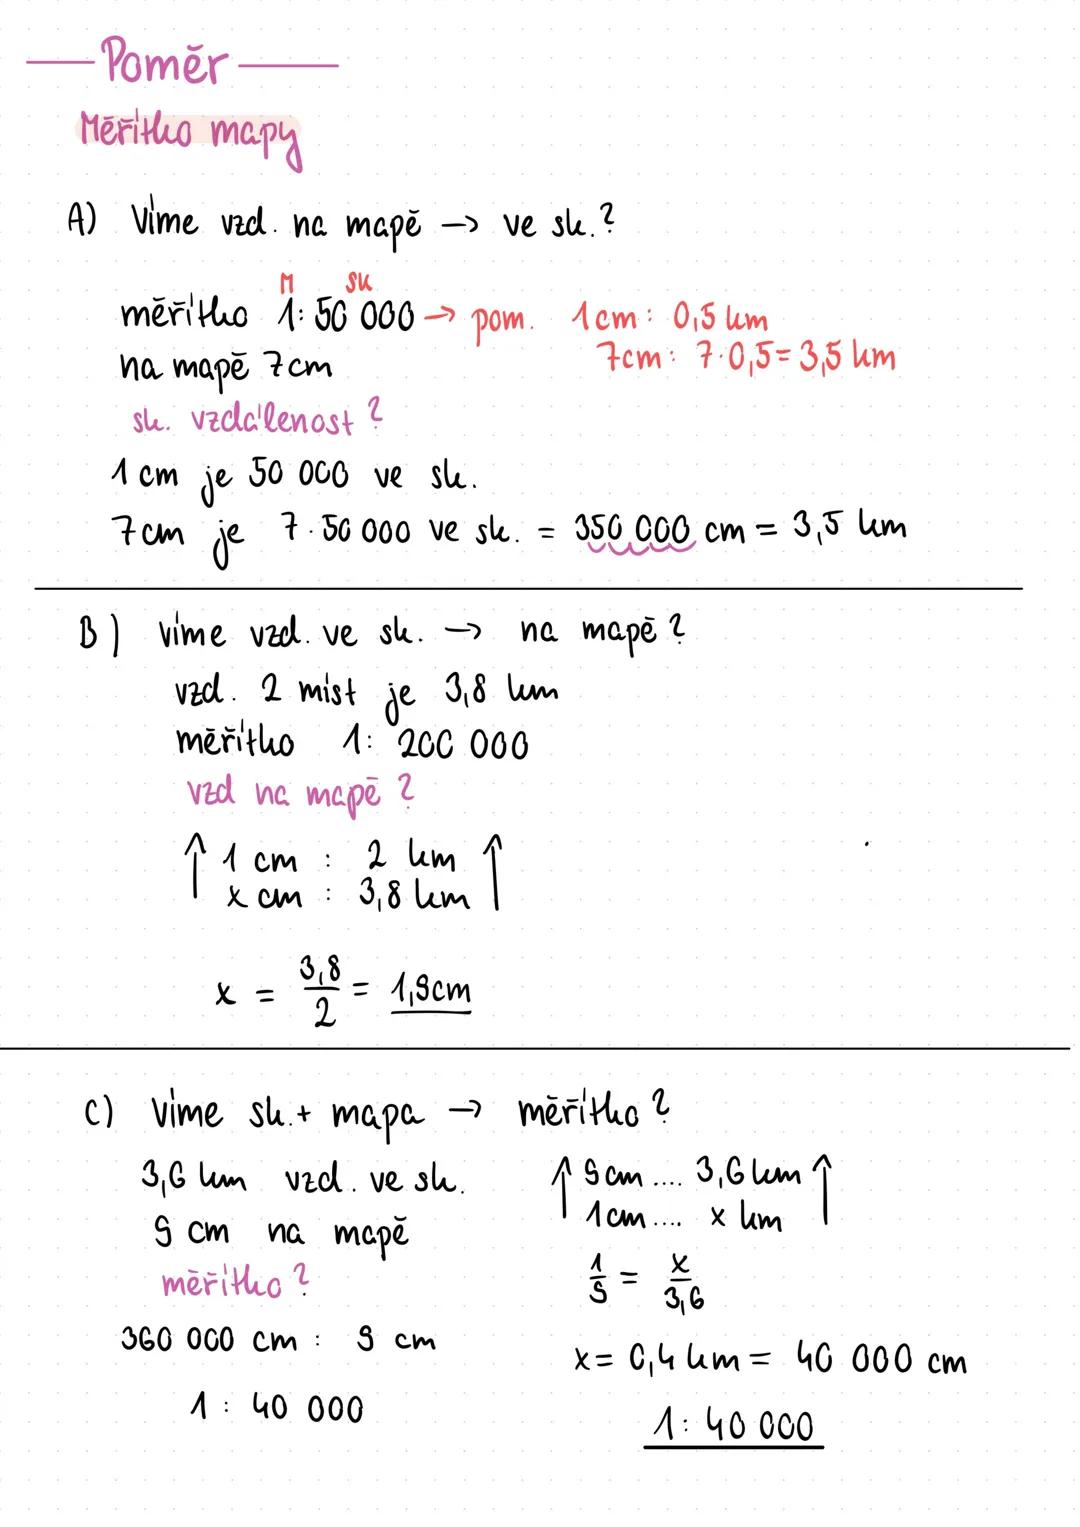 Poměr
Měřítko mapy
A) Víme vzd. na mapě → ve sk.?
M sk
měřítko 1: 50 000 → pom. 1cm: 0,5 km
na mapě 7cm 7cm: 7·0,5 = 3,5 km
sk. vzdálenost?
1 cm je 50 000 ve sk.
7cm je 7·50 000 ve sk. = 350 000 cm = 3,5 km
B) víme vzd. ve sk. → na mapě?
vzd. 2 míst je 3,8 km
měřítko 1: 200 000
vzd na mapě?
↑ 1 cm : 2 km ↑
x cm : 3,8 km
x = 3,8/2 = 1,9cm
C) víme sk.+ mapa → měřítko?
3,6 km vzd. ve sk.
9 cm na mapě
měřítko?
360 000 cm : 9 cm
1 : 40 000
↑ 9cm .... 3,6km ↑
1cm .... x km
1/9 = x/3,6
x = 0,4 km = 40 000 cm
1: 40 000